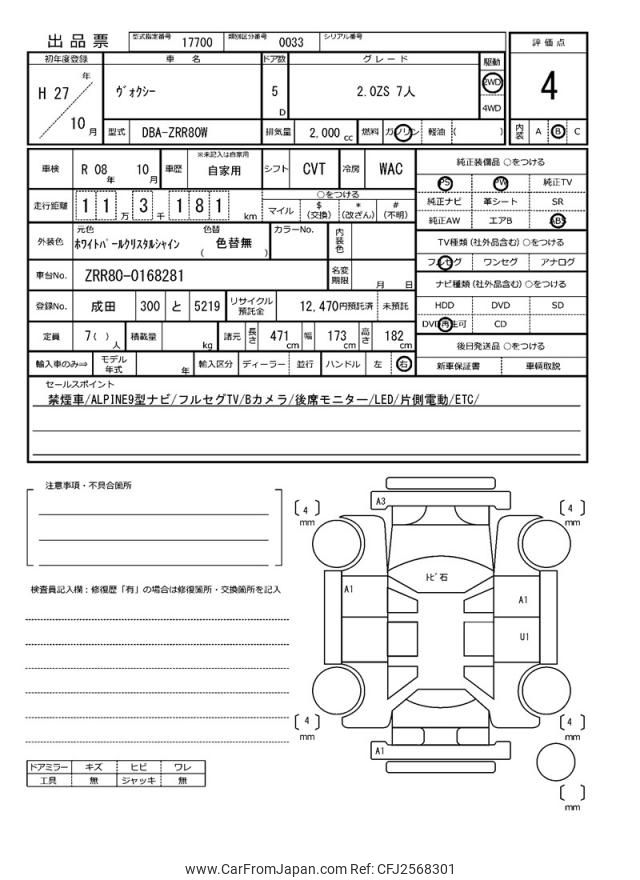 出品票 型式指定番号 17700 類別区分番号 0033 シリアル番号
評価点
4
内装 A B C
初年度登録 車名 ドア数 グレード 駆動
H 27 年 10 月 ヴォクシー 5 D 2.0ZS 7人 2WD 4WD
型式 DBA-ZRR80W 排気量 2,000 cc 燃料 ガソリン 軽油 ( )
車検 R 08 年 10 月 車歴 ※未記入は自家用 自家用 シフト CVT 冷房 WAC
走行距離 1 1 万 3 千 1 8 1 km ○をつける
マイル $ (交換) * (改ざん) # (不明)
外装色 元色 ホワイトパールクリスタルシャイン 色替 ( 色替無 ) カラーNo. 内装色
車台No. ZRR80-0168281 名変期限 月 日
登録No. 成田 300 と 5219 リサイクル預託金 12,470円預託済 未預託
定員 7( ) 人 積載量 kg 諸元 長さ 471 cm 幅 173 cm 高さ 182 cm
輸入車のみ⇒ モデル年式 年 輸入区分 ディーラー 並行 ハンドル 左 右
純正装備品 ○をつける
PS PW 純正TV
純正ナビ 革シート SR
純正AW エアB ABS
TV種類(社外品含む) ○をつける
フルセグ ワンセグ アナログ
ナビ種類(社外品含む) ○をつける
HDD DVD SD
DVD再生可 CD
後日発送品 ○をつける
新車保証書 車輌取説
セールスポイント
禁煙車/ALPINE9型ナビ/フルセグTV/Bカメラ/後席モニター/LED/片側電動/ETC/
注意事項・不具合箇所
検査員記入欄:修復歴「有」の場合は修復箇所・交換箇所を記入
ドアミラー キズ ヒビ ワレ
工具 無 ジャッキ 無
A3
[ 4 ] mm
[ 4 ] mm
トビ石
A1
A1
U1
[ 4 ] mm
[ 4 ] mm
A1
[ ] mm
www.CarFromJapan.com Ref: CFJ2568301